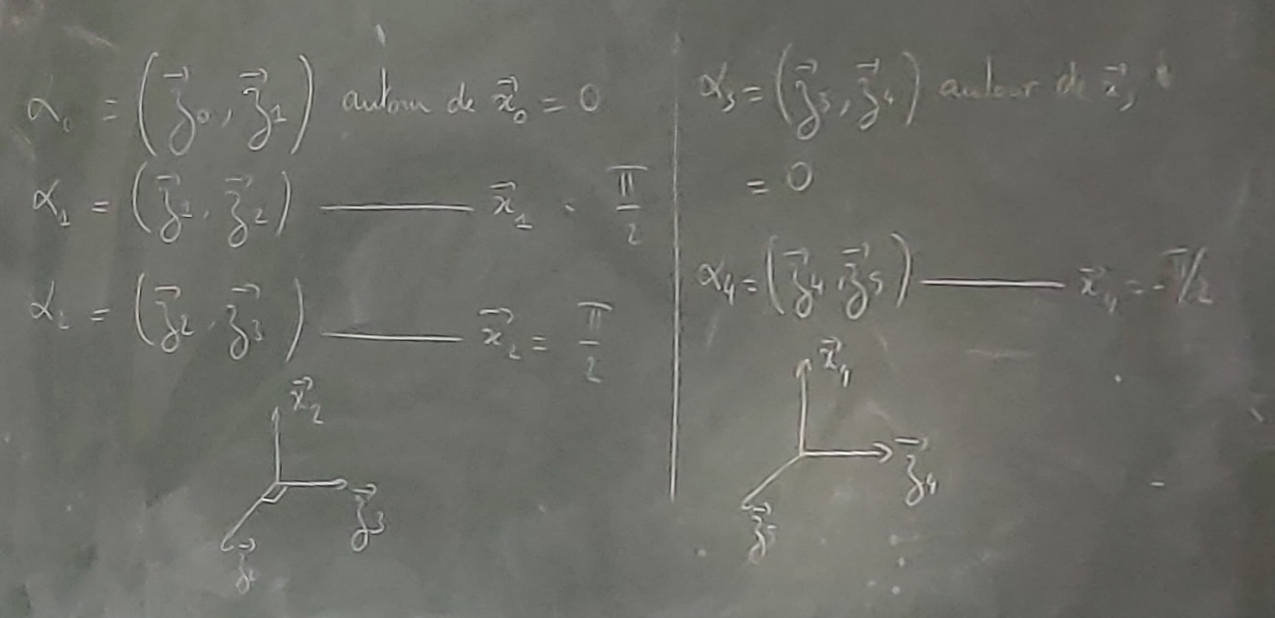 α₀ = (z⃗₀, z⃗₁) autour de x⃗₀ = 0
α₁ = (z⃗₁, z⃗₂) ——— x⃗₁ - π/2
α₂ = (z⃗₂, z⃗₃) ——— x⃗₂ = π/2
x⃗₂
z⃗₃
z⃗₂
α₃ = (z⃗₃, z⃗₄) autour de x⃗₃
= 0
α₄ = (z⃗₄, z⃗₅) ——— x⃗₄ = -π/2
x⃗₄
z⃗₄
z⃗₅